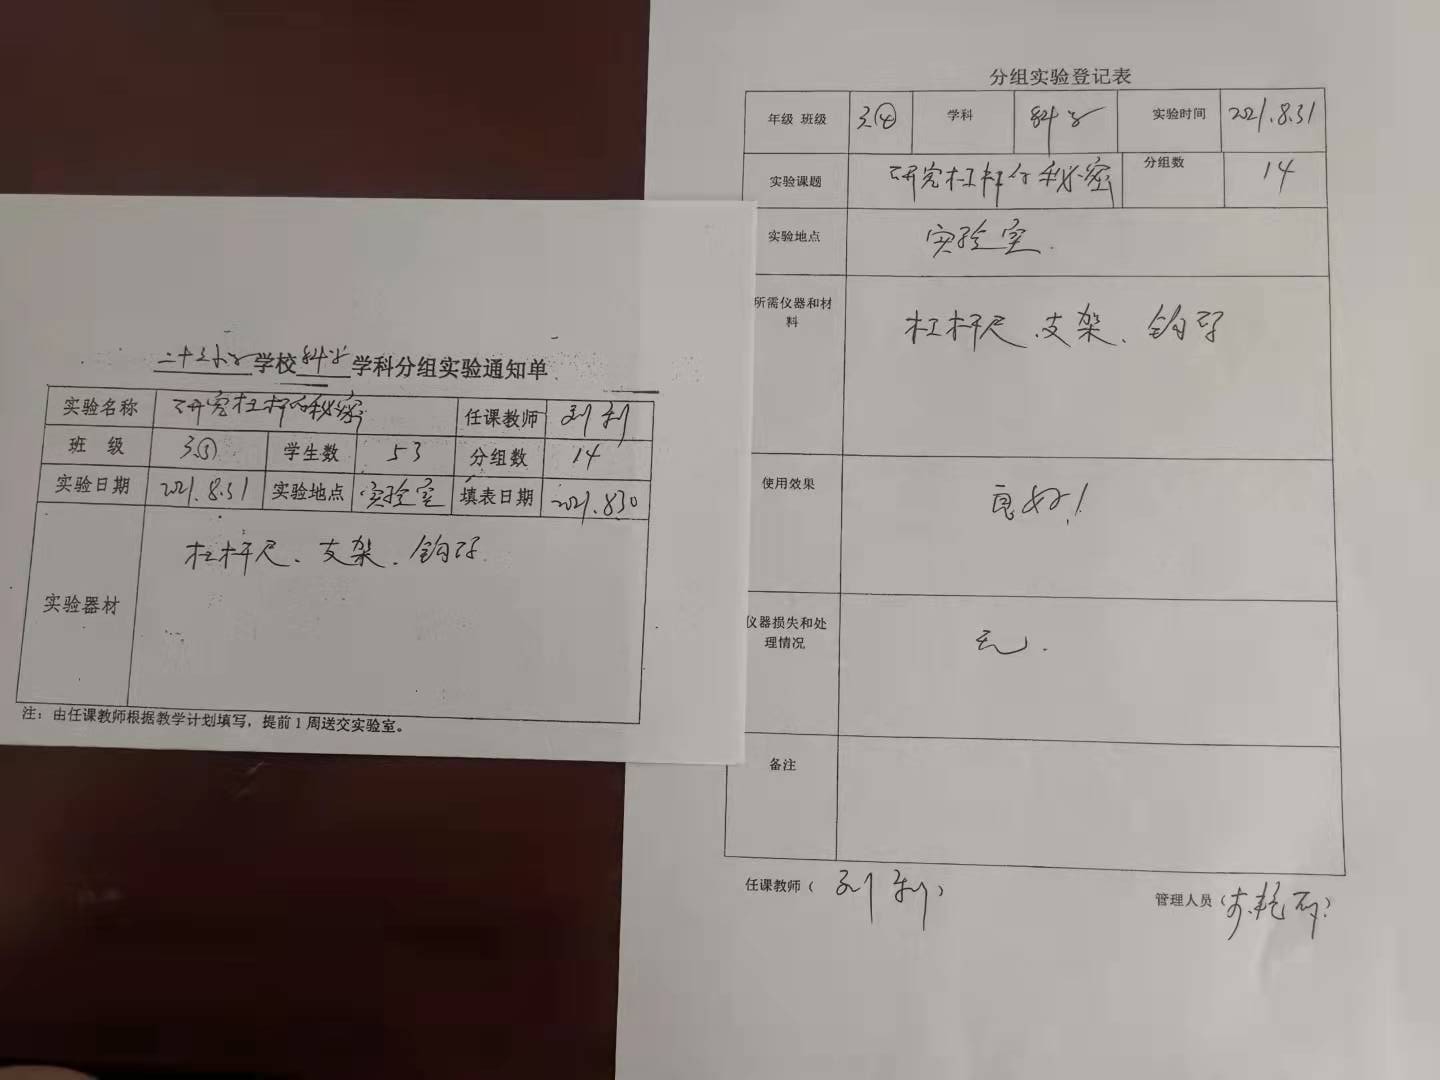 二十三小学学校科学学科分组实验通知单
实验名称 研究杠杆的秘密 任课教师 刘利
班 级 3③ 学生数 53 分组数 14
实验日期 2021.8.31 实验地点 实验室 填表日期 2021.8.30
实验器材 杠杆尺、支架、钩码
注：由任课教师根据教学计划填写，提前1周送交实验室。
分组实验登记表
年级 班级 三④ 学科 科学 实验时间 2021.8.31
实验课题 研究杠杆的秘密 分组数 14
实验地点 实验室.
所需仪器和材
料
杠杆尺、支架、钩码
使用效果 良好！
仪器损失和处
理情况
无.
备注
任课教师（刘利） 管理人员（